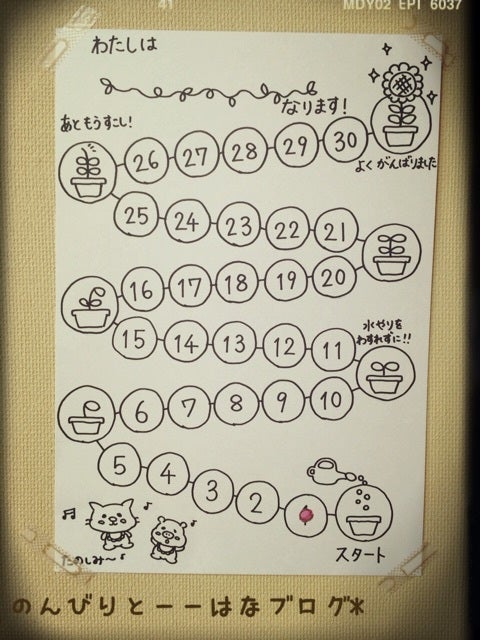 41 MDY02 EPI 6037
わたしは
なります!
あともうすこし!
26 27 28 29 30
よくがんばりました
25 24 23 22 21
16 17 18 19 20
水やりを
わすれずに!!
15 14 13 12 11
6 7 8 9 10
5 4 3 2
たのしみ〜♪
スタート
のんびりとーーはなブログ*